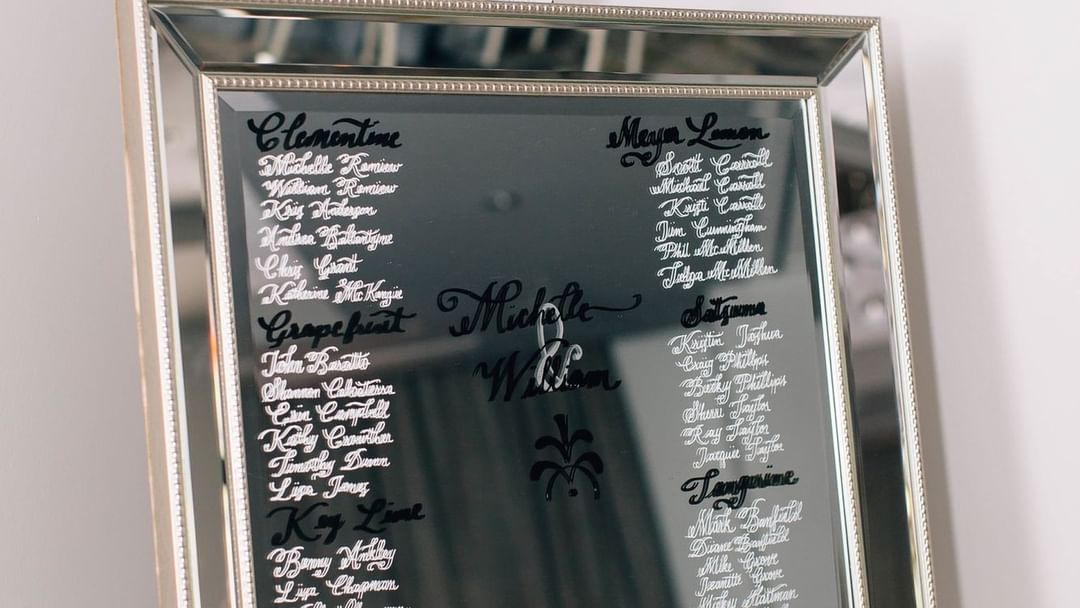 Clementine
Michelle Remiew
William Remiew
Kris Anderson
Andrea Ballantyne
Chris Grant
Katherine McKenzie
Grapefruit
John Baratto
Shannen
Erin Campbell
Kathy Crowther
Timothy Dunn
Lisa Jones
Key Lime
Benny Ankley
Lisa Chapman
Michelle
&
William
Meyer Lemon
Scott Carroll
Michael Carroll
Kristi Carroll
Jim Cunningham
Phil McMillen
McMillen
Satsuma
Kristin Joshua
Craig Phillips
Becky Phillips
Sherri Taylor
Ray Taylor
Jacquie Taylor
Tangerine
Mark Banfield
Diane Banfield
Mike Grove
Jeanette Grove
Hartman